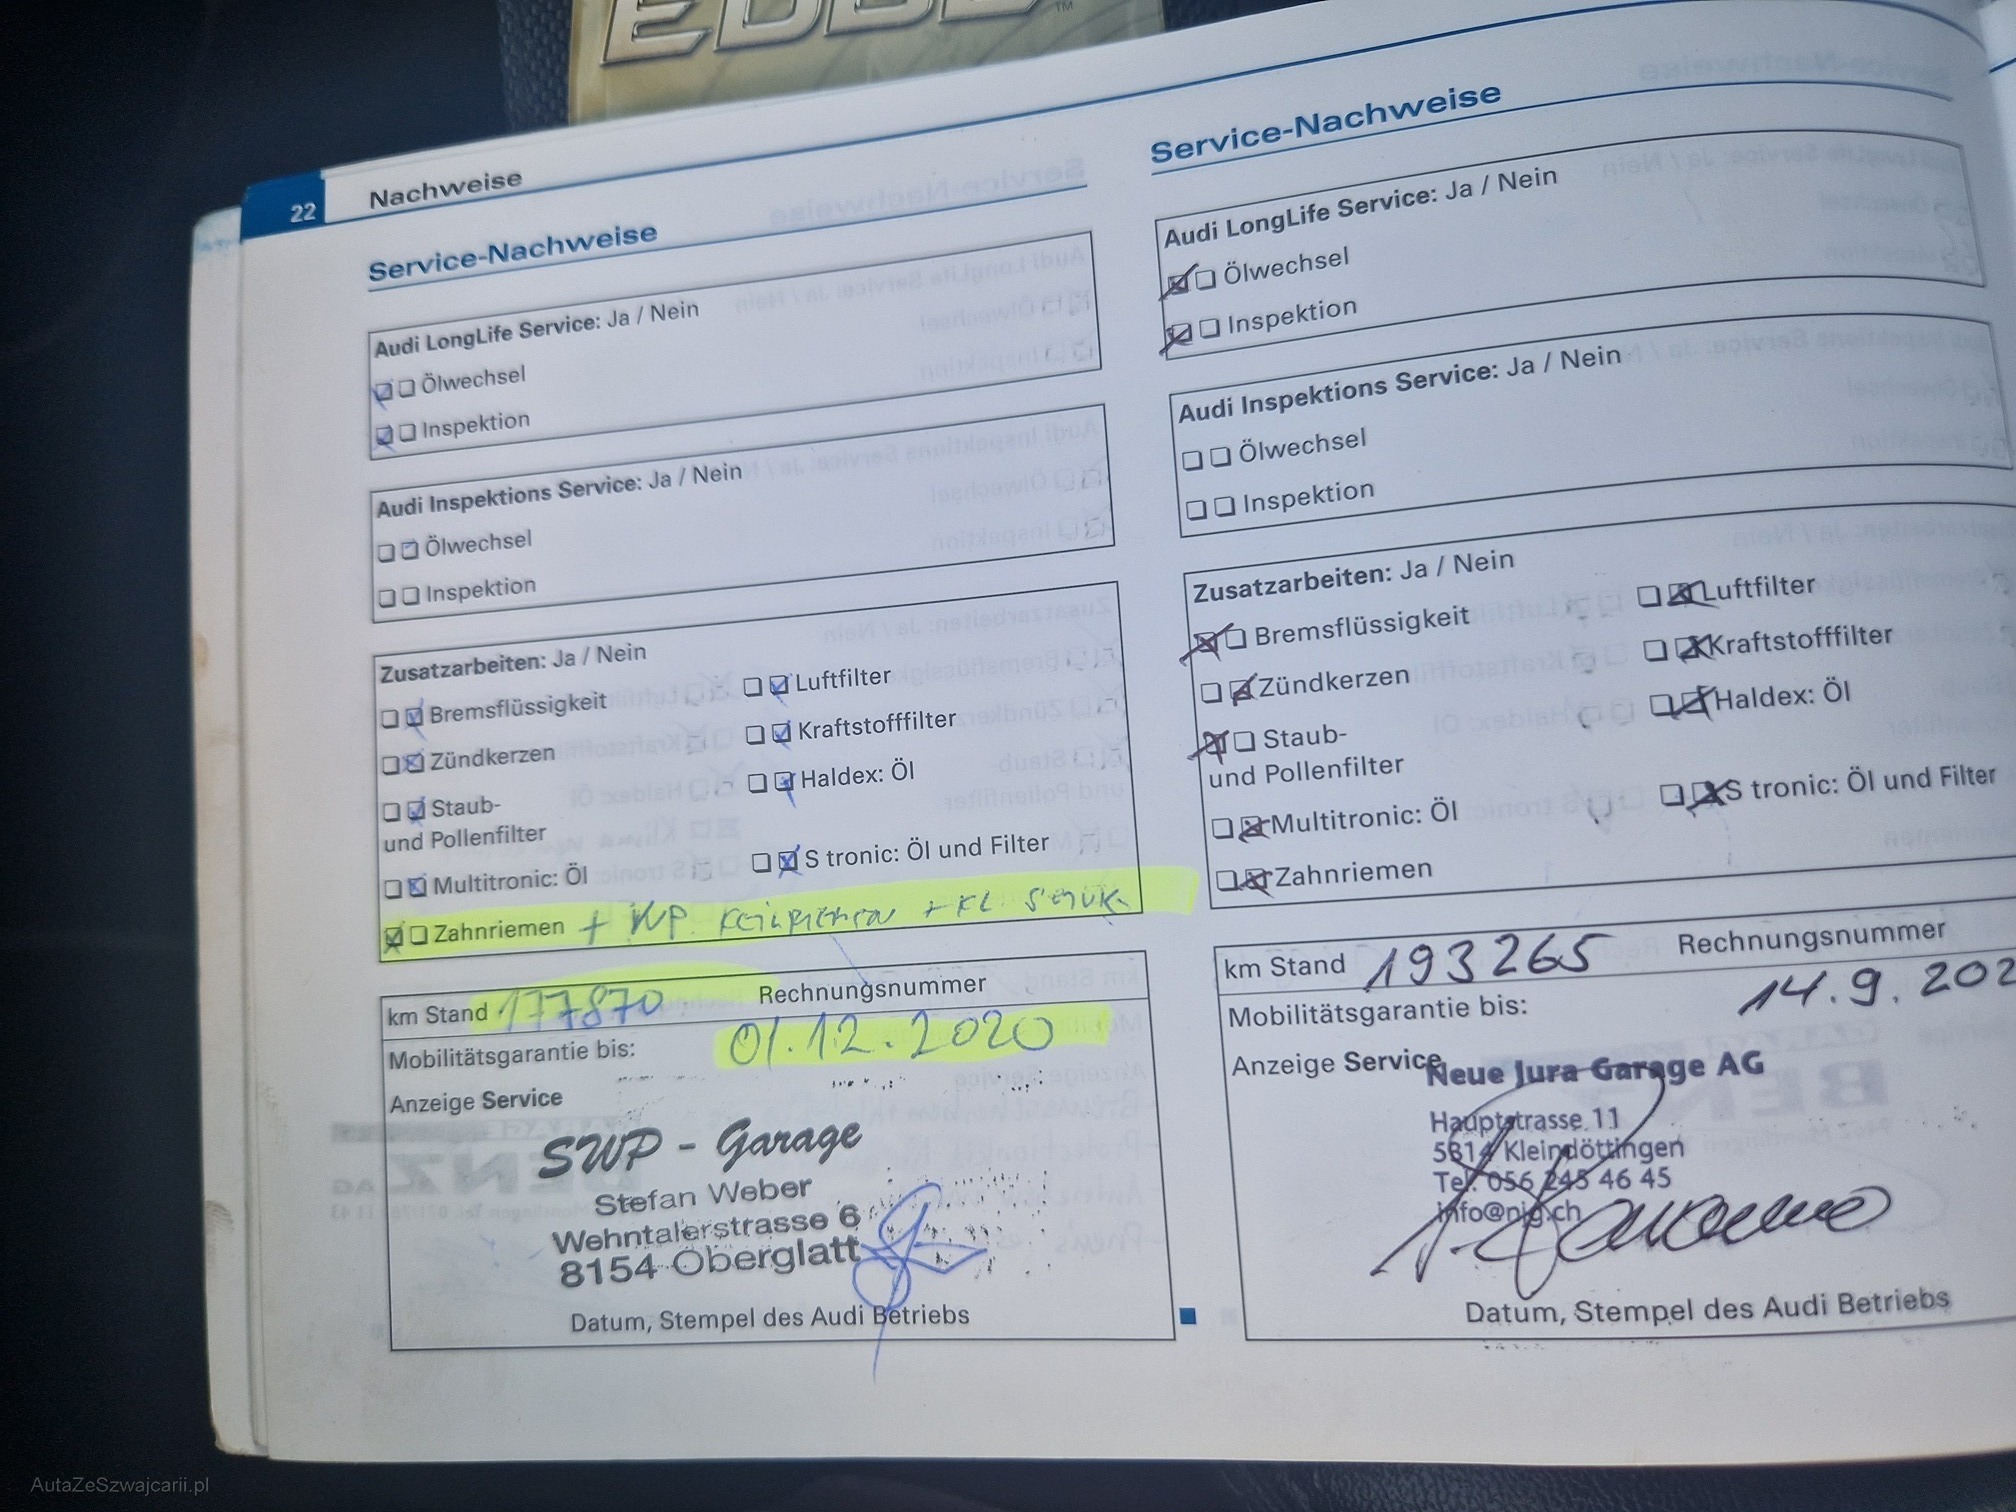 EDGE
TM
22
Nachweise
Service-Nachweise
Audi LongLife Service: Ja / Nein
Ölwechsel
Inspektion
Audi Inspektions Service: Ja / Nein
Ölwechsel
Inspektion
Zusatzarbeiten: Ja / Nein
Bremsflüssigkeit
Luftfilter
Zündkerzen
Kraftstofffilter
Staub-
und Pollenfilter
Haldex: Öl
Multitronic: Öl
S tronic: Öl und Filter
Zahnriemen + WP
km Stand 177870 Rechnungsnummer
Mobilitätsgarantie bis: 01.12.2020
Anzeige Service
SWP - Garage
Stefan Weber
Wehntalerstrasse 6
8154 Oberglatt
Datum, Stempel des Audi Betriebs
Service-Nachweise
Audi LongLife Service: Ja / Nein
Ölwechsel
Inspektion
Audi Inspektions Service: Ja / Nein
Ölwechsel
Inspektion
Zusatzarbeiten: Ja / Nein
Bremsflüssigkeit
Luftfilter
Zündkerzen
Kraftstofffilter
Staub-
und Pollenfilter
Haldex: Öl
Multitronic: Öl
S tronic: Öl und Filter
Zahnriemen
km Stand 193265 Rechnungsnummer
Mobilitätsgarantie bis: 14.9.202
Anzeige Service
Neue Jura Garage AG
Hauptstrasse 11
5314 Kleindöttingen
Tel. 056 245 46 45
info@njg.ch
Datum, Stempel des Audi Betriebs
AutaZeSzwajcarii.pl